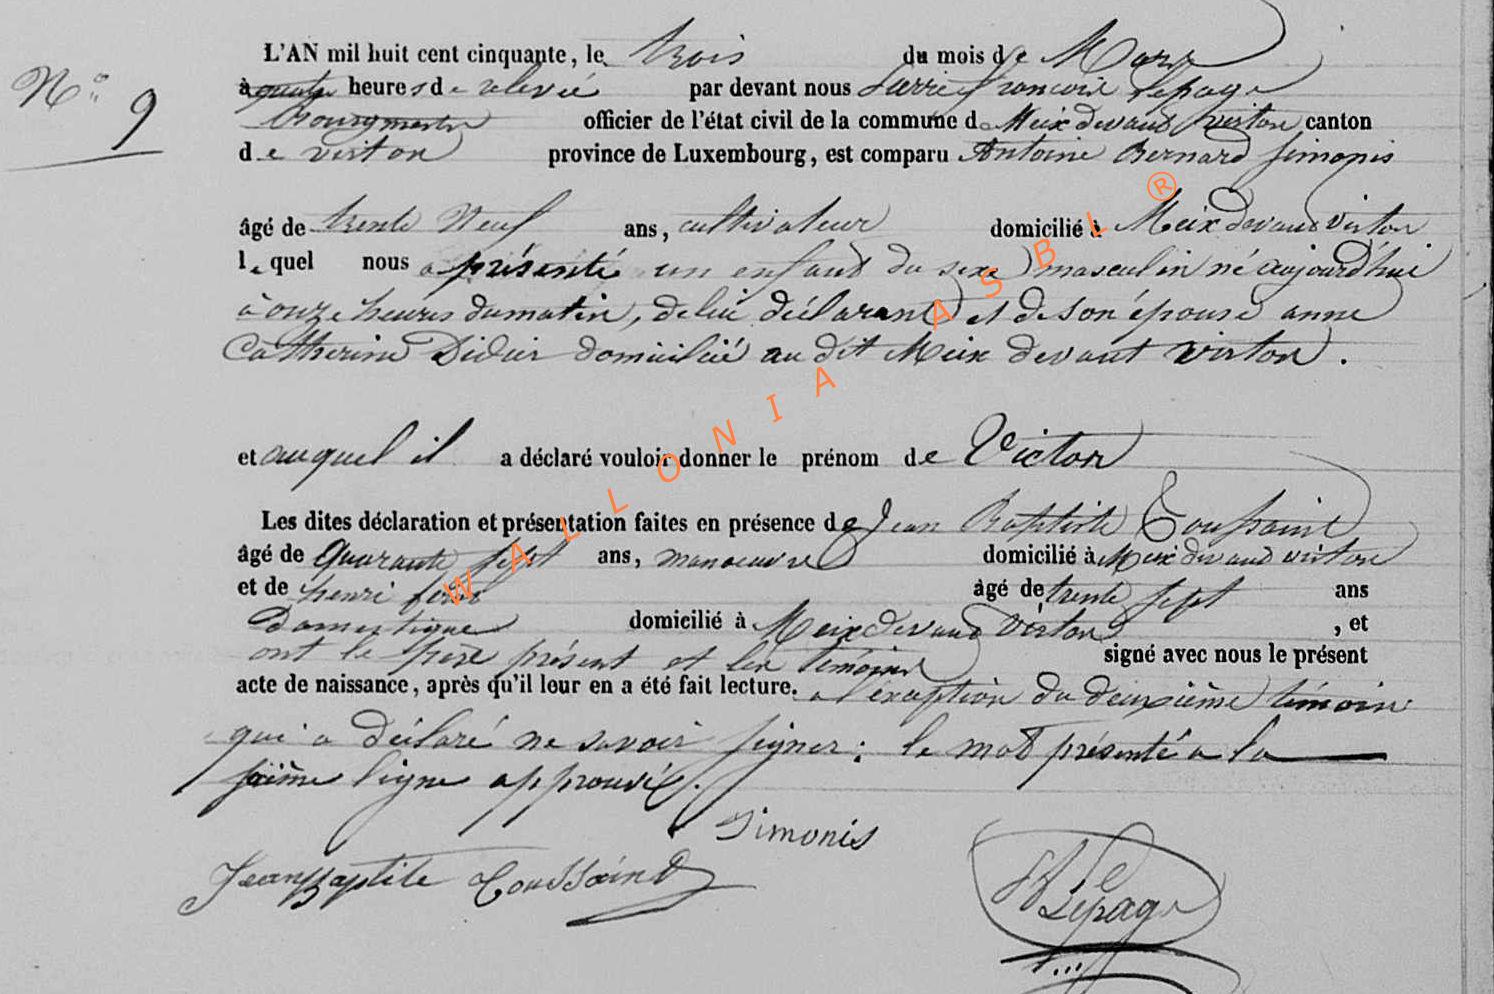 N° 9
L'AN mil huit cent cinquante, le trois du mois de Mars
à quatre heures de relevée par devant nous Pierre françois Lepage
bourgmestre officier de l'état civil de la commune de Meix devant virton canton
de virton province de Luxembourg, est comparu Antoine Bernard Simonis
âgé de trente Neuf ans, cultivateur domicilié à Meix devant virton
lequel nous a présenté un enfant du sexe masculin né aujourd'hui
à onze heures du matin, de lui déclarant et de son épouse anne
Catherine Didier domicilié au dit Meix devant virton.
et auquel il a déclaré vouloir donner le prénom de Victor
Les dites déclaration et présentation faites en présence de Jean Baptiste Toussaint
âgé de quarante sept ans, manoeuvre domicilié à Meix devant virton
et de henri âgé de trente sept ans
Domestique domicilié à Meix devant Virton, et
ont le père présent et les témoins signé avec nous le présent
acte de naissance, après qu'il leur en a été fait lecture. a l'exception du deuxième témoin
qui a déclaré ne savoir signer: le mot présenté a la
ligne approuvé.
Simonis
Jean Baptite Toussaint
Lepage
WALLONIA ASBL ®